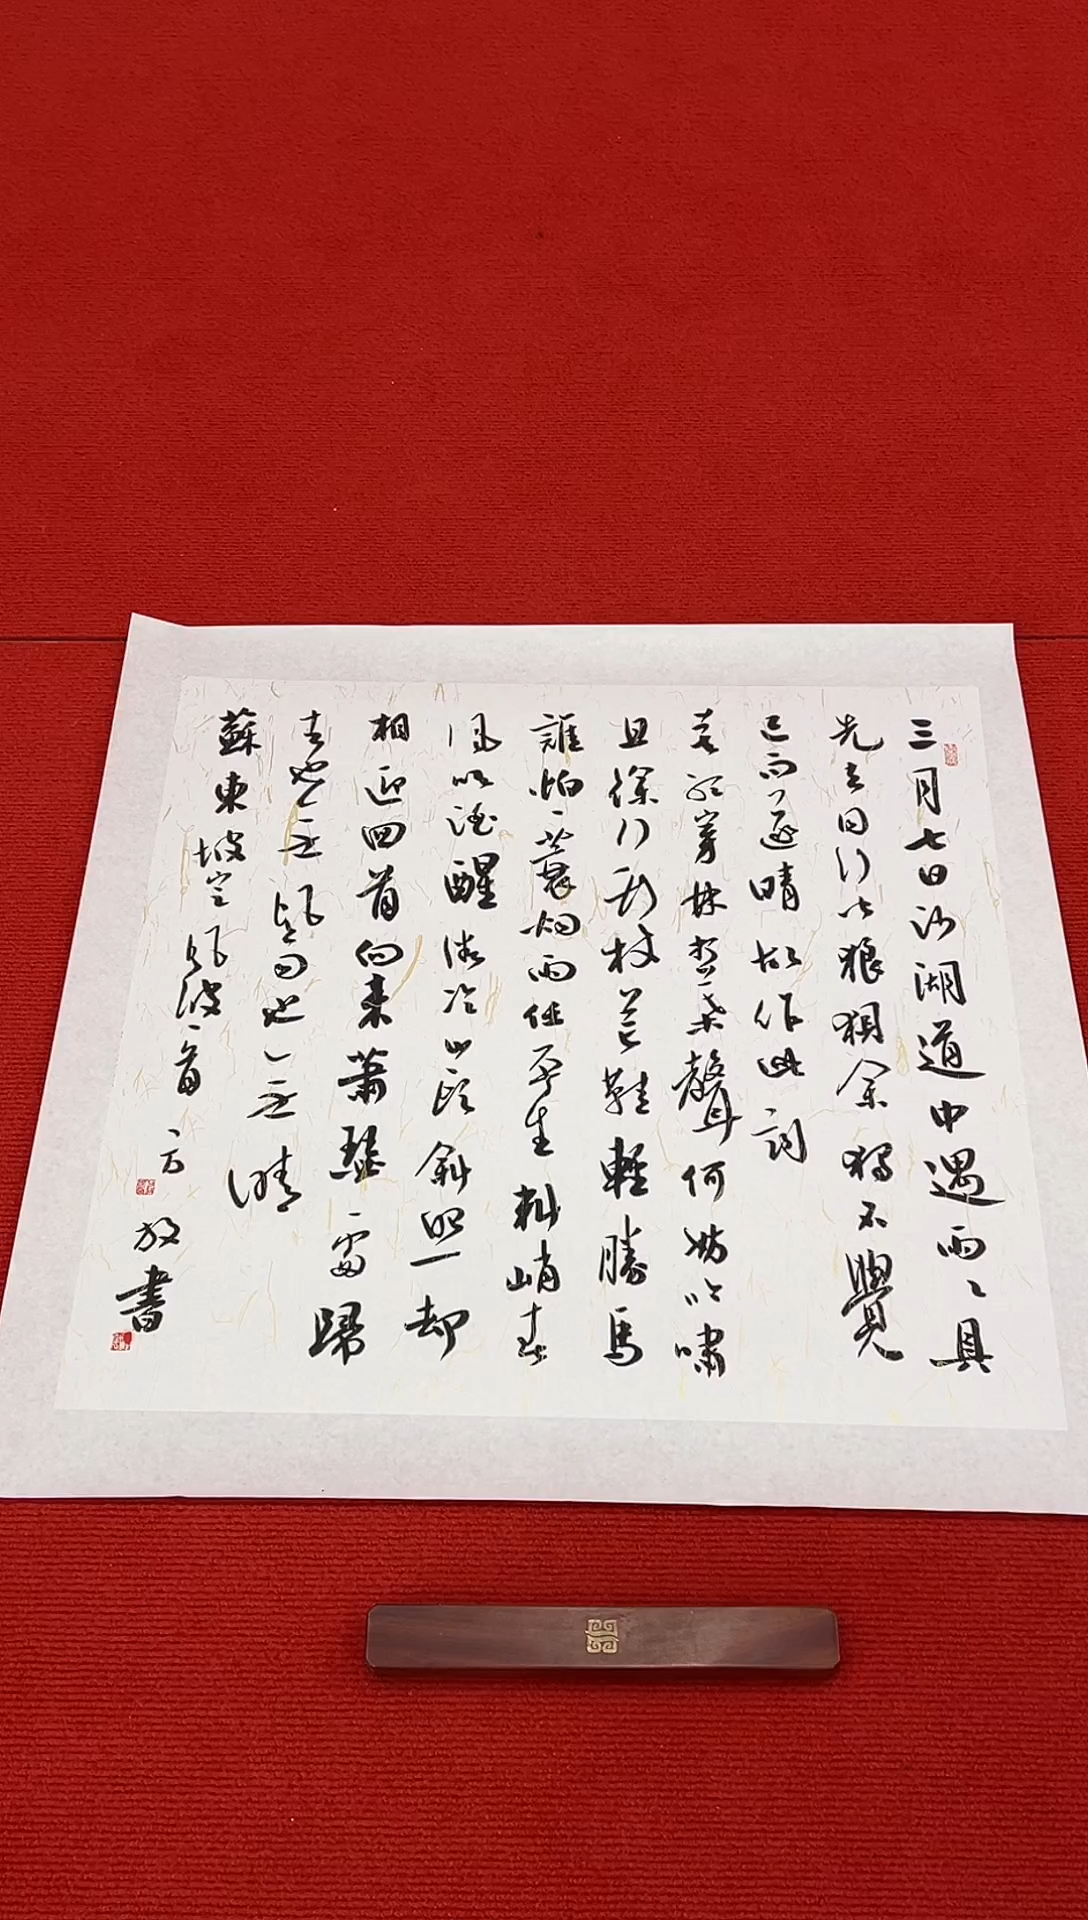 三月七日沙湖道中遇雨々具
先去同行皆狼狽余獨不覺
已而遂晴故作此詞
莫聽穿林打葉聲何妨吟嘯
且徐行竹杖芒鞋輕勝馬
誰怕一蓑烟雨任平生料峭春
風吹酒醒微冷山頭斜照却
相迎回首向來蕭瑟處歸
去也無風雨也無晴
蘇東坡定風波一首 放書